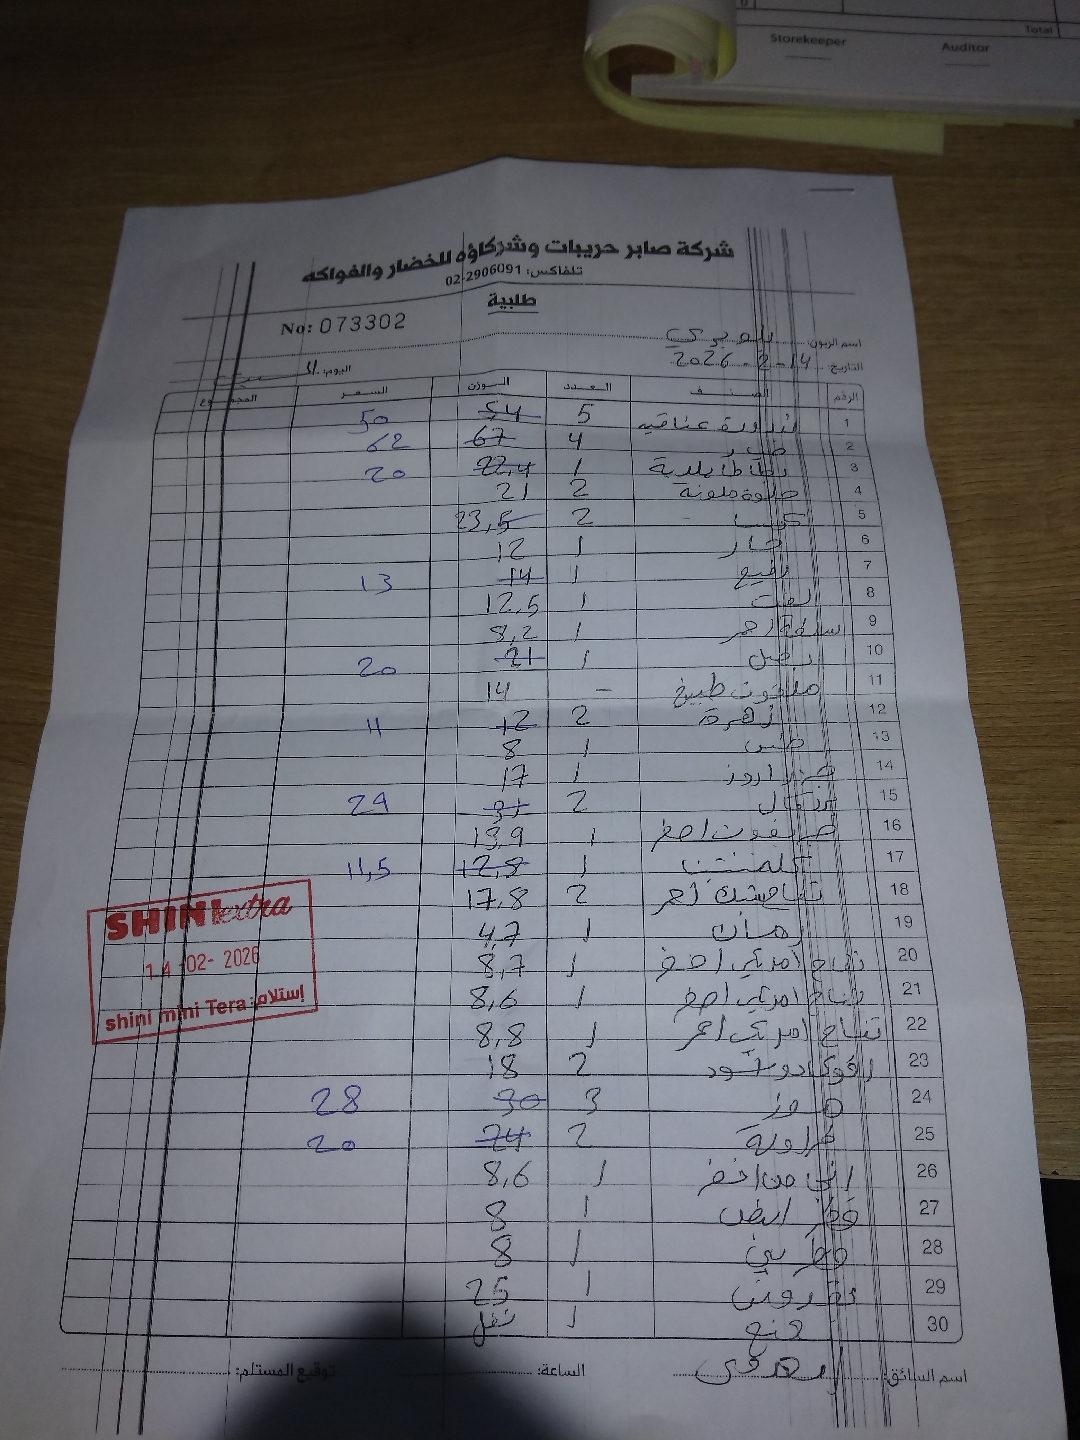 Total
Storekeeper Auditor
شركة صابر حريبات وشركاؤه للخضار والفواكه
تلفاكس: 02-2906091
طلبية
No: 073302
اسم الزبون
التاريخ: 2026-2-14 اليوم:
الرقم الصنف العدد الوزن السعر المجموع
1 بندورة عناقيد 5 54 50
2 خيار 4 67 62
3 بطاطا بلدية 1 22,4 20
4 حلوة ملونة 2 21
5 كوسا 2 23,5
6 حار 1 12
7 1 14 13
8 لفت 1 12,5
9 احمر 1 8,2
10 بصل 1 21 20
11 ملفوف طبيخ - 14
12 زهرة 2 12 11
13 خس 1 8
14 1 17
15 برتقال 2 31 29
16 جريفوت اصفر 1 13,9
17 كلمنتينا 1 12,8 11,5
18 احمر 2 17,8
19 رمان 1 4,7
20 تفاح امريكي اخضر 1 8,7
21 تفاح امريكي اصفر 1 8,6
22 تفاح امريكي احمر 1 8,8
23 افوكادو 2 18
24 موز 3 30 28
25 فراولة 2 24 20
26 1 8,6
27 فطر ابيض 1 8
28 فطر بني 1 8
29 بقدونس 1 25
30 نعنع 1
SHINI extra
14-02-2026
إستلام: shini mini Tera
اسم السائق: الساعة: توقيع المستلم: